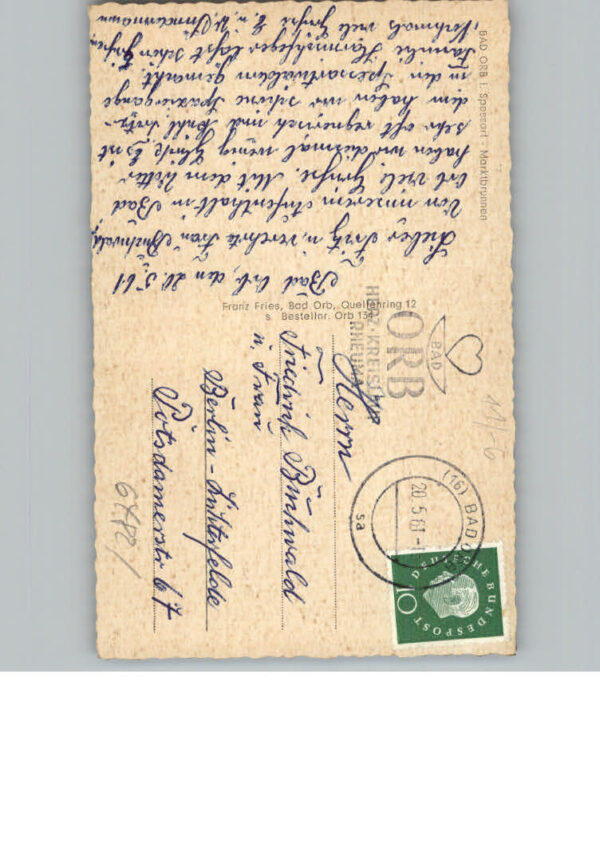 BAD ORB i. Spessart - Marktbrunnen
Bad Orb, den 20.5.61
Lieber Fritz u. verehrte Frau Buchwald,
Von unserem Aufenthalt in Bad
Orb viele Grüße. Mit dem Wetter
haben wir diesmal wenig Glück. Es ist
sehr oft regnerisch und kühl. Trotz-
dem haben wir schöne Spaziergänge
in den Spessartwäldern gemacht.
Familie läßt schön grüßen
Nochmals viele Grüße
Franz Fries, Bad Orb, Quellenring 12
s Bestellnr. Orb 134
BAD
ORB
HERZ·KREISL
RHEUMA
(16) BAD ORB
20.5.61-1
sa
DEUTSCHE BUNDESPOST
10
Herrn
Friedrich Buchwald
u. Frau
Berlin-Lichterfelde
Potsdamerstr 67